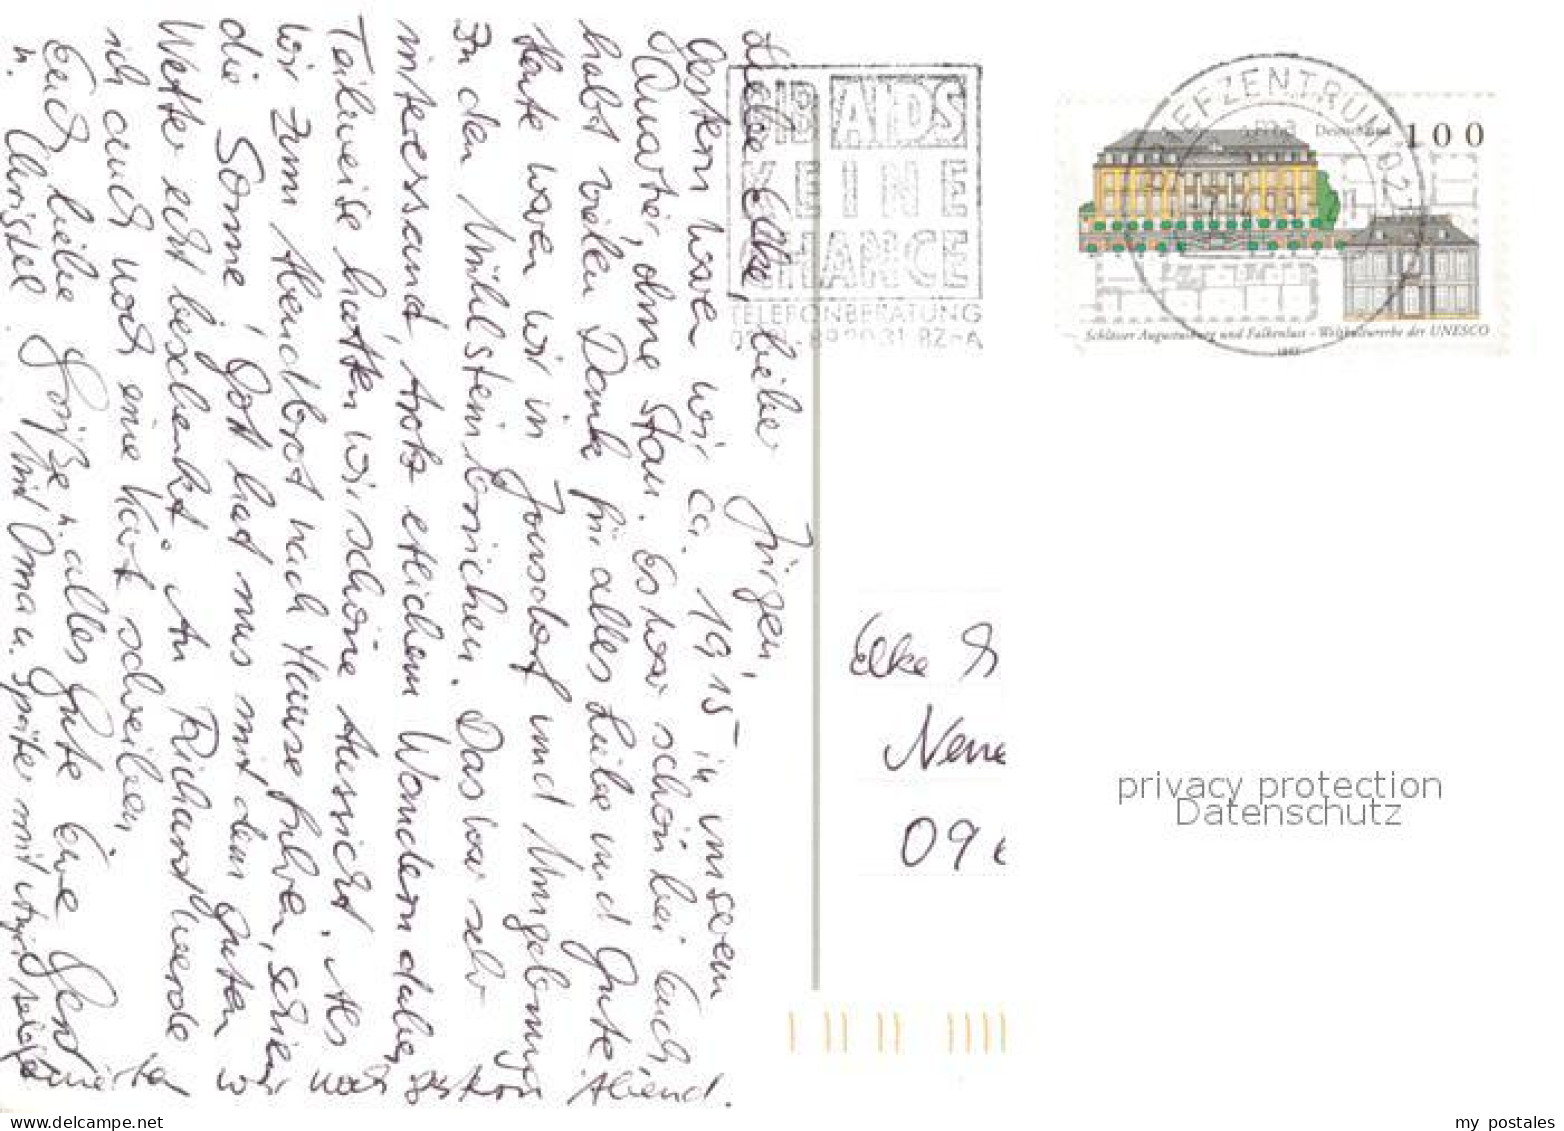 Liebe Elke, lieber Jürgen,
Gestern waren wir ca. 19¹⁵ in unserem
Quartier, ohne Stau. Es war schön bei Euch,
habt vielen Dank für alles Liebe und Gute.
Heute waren wir in Jonsdorf und Umgebung
In den Mühlsteinbrüchen. Das war sehr
interessant, trotz etlichem Wandern dabei
Teilweise hatten wir schöne Aussicht. Als
wir zum Abendbrot nach Hause fuhren, schien
die Sonne, Gott hat uns mit dem guten
Wetter echt beschenkt. An Richard werde
ich auch noch eine Karte schreiben.
Euch liebe Grüße u. alles Gute Eure Gerd
u. Christel. Mit Oma u. später mit
Abend.
AIDS
KEINE
CHANCE
TELEFONBERATUNG
BRIEFZENTRUM 02
Deutschland 100
Schlösser Augustusburg und Falkenlust - Weltkulturerbe der UNESCO
Elke
Neue
09
privacy protection
Datenschutz
delcampe.net
my_postales